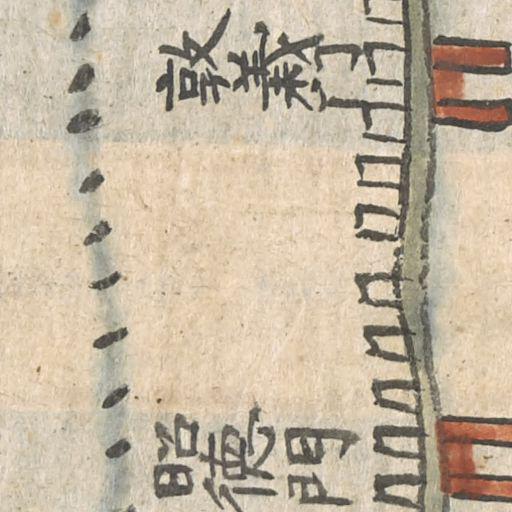 敦義門
昭德門